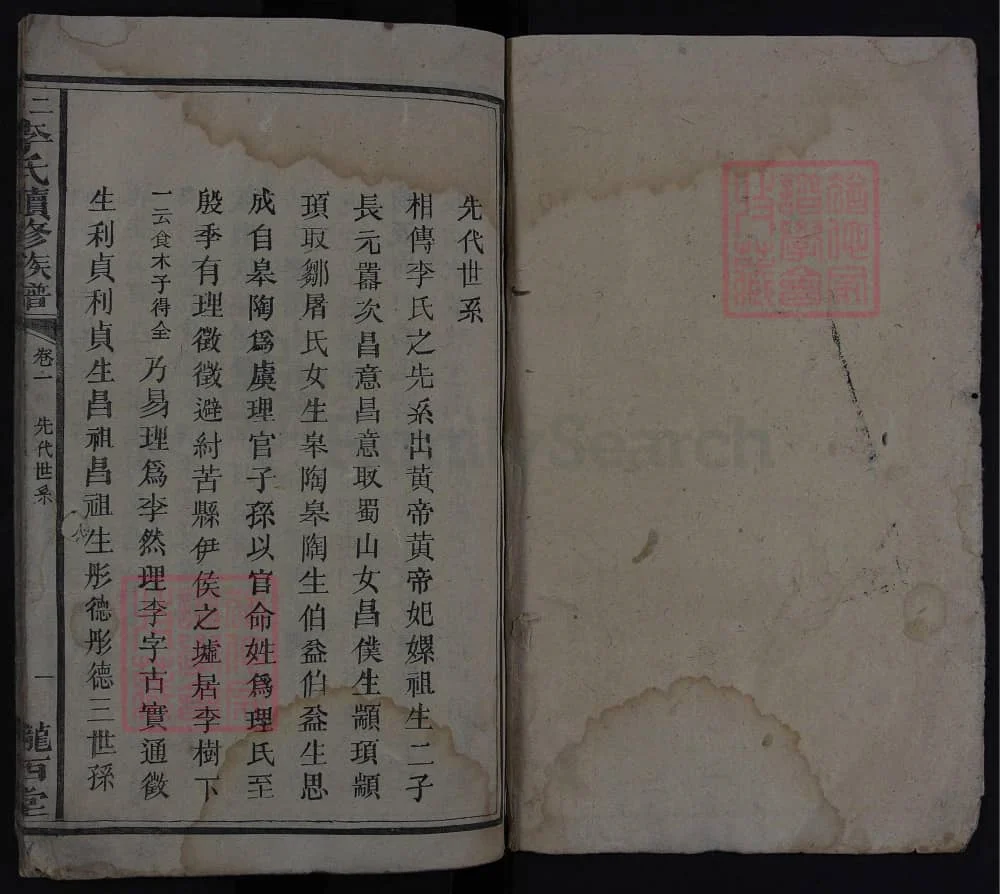 先代世系
相傳李氏之先系出黃帝黃帝妃嫘祖生二子
長元囂次昌意昌意取蜀山女昌僕生顓頊顓
頊取鄒屠氏女生皋陶皋陶生伯益伯益生恩
成自皋陶爲虞理官子孫以官命姓爲理氏至
殷季有理徵徵避紂苦縣伊侯之墟居李樹下
一云食木子得全乃易理爲李然理李字古實通徵
生利貞利貞生昌祖昌祖生彤德彤德三世孫
二李氏續修族譜
卷一
先代世系
一
隴西堂
FamilySearch